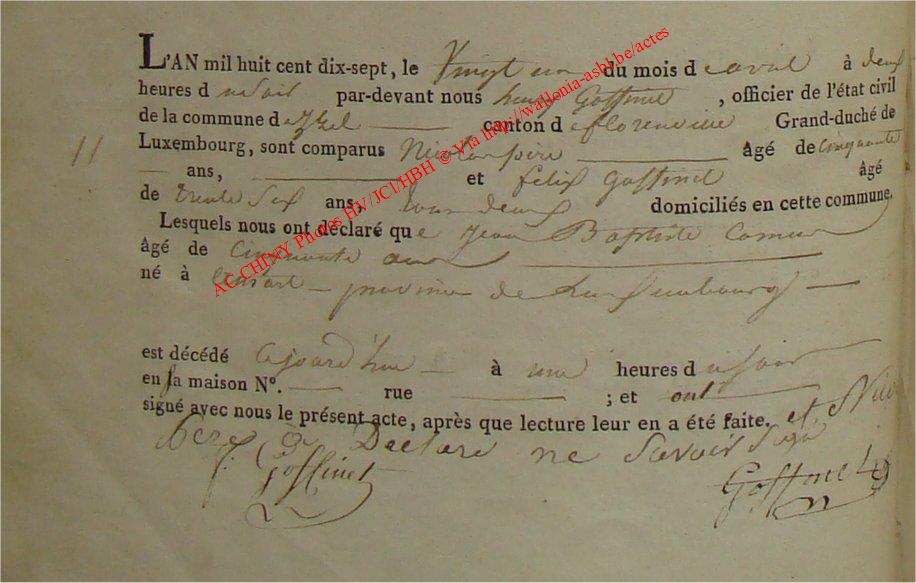 L'AN mil huit cent dix-sept, le Vingt un du mois d avril à deux
heures d du soir par-devant nous henry Goffinet , officier de l'état civil
de la commune d izel canton d e florenville Grand-duché de
11 Luxembourg, sont comparus Nicolas pire âgé de Cinquante
ans, et felix Goffinet âgé
de trente Six ans, tous deux domiciliés en cette commune.
Lesquels nous ont déclaré que Jean Baptiste
âgé de Cinquante ans
né à province de Luxembourg
est décédé ajourd'hui à une heures du soir
en sa maison N°. rue ; et ont
signé avec nous le présent acte, après que lecture leur en a été faite. et
a Declaré ne Savoir
f. Goffinet
Goffinet
AC CHINY Photos HV/JCl/HBH © Via http://wallonia-asbl.be/actes